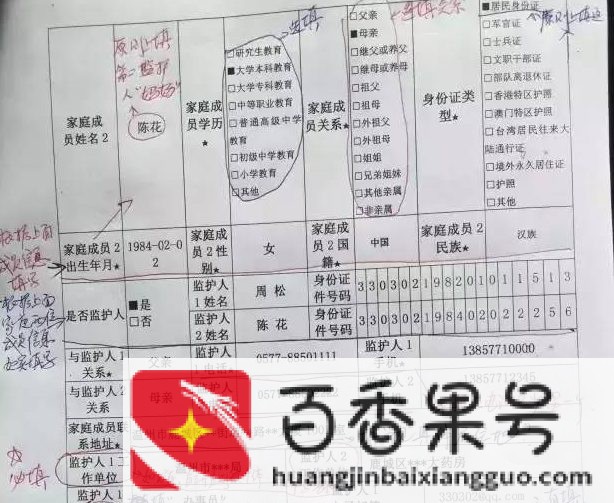 原则上填
第二监护
人"妈妈"
选填
选填关系
家庭成
员姓名2
陈花
家庭成
员学历★
□研究生教育
■大学本科教育
□大学专科教育
□中等职业教育
□普通高级中学
教育
□初级中学教育
□小学教育
□其他
家庭成
员关系★
□父亲
■母亲
□继父或养父
□继母或养母
□祖父
□祖母
□外祖父
□外祖母
□姐姐
□兄弟姐妹
□其他亲属
□非亲属
身份证类
型★
■居民身份证
□军官证
□士兵证
□文职干部证
□部队离退休证
□香港特区护照
□澳门特区护照
□台湾居民往来大
陆通行证
□境外永久居住证
□护照
□其他
家庭成员2
出生年月★
1984-02-0
2
家庭成
员2性
别★
女
家庭成
员2国
籍★
中国
家庭成员2
民族★
汉族
是否监护人
■是
□否
监护人
1姓名★
周松
身份证
件号码
330302198201011513
监护人
2姓名★
陈花
身份证
件号码
330302198402022256
与监护人1
关系★
父亲
0577-88501111
监护人1
手机★
13857710000
与监护人2
关系
母亲
13857712345
家庭成员联
系地址★
必填
监护人1工
作单位
大药房
监护人1
办事员
百香果号
huangjinbaixiangguo.com